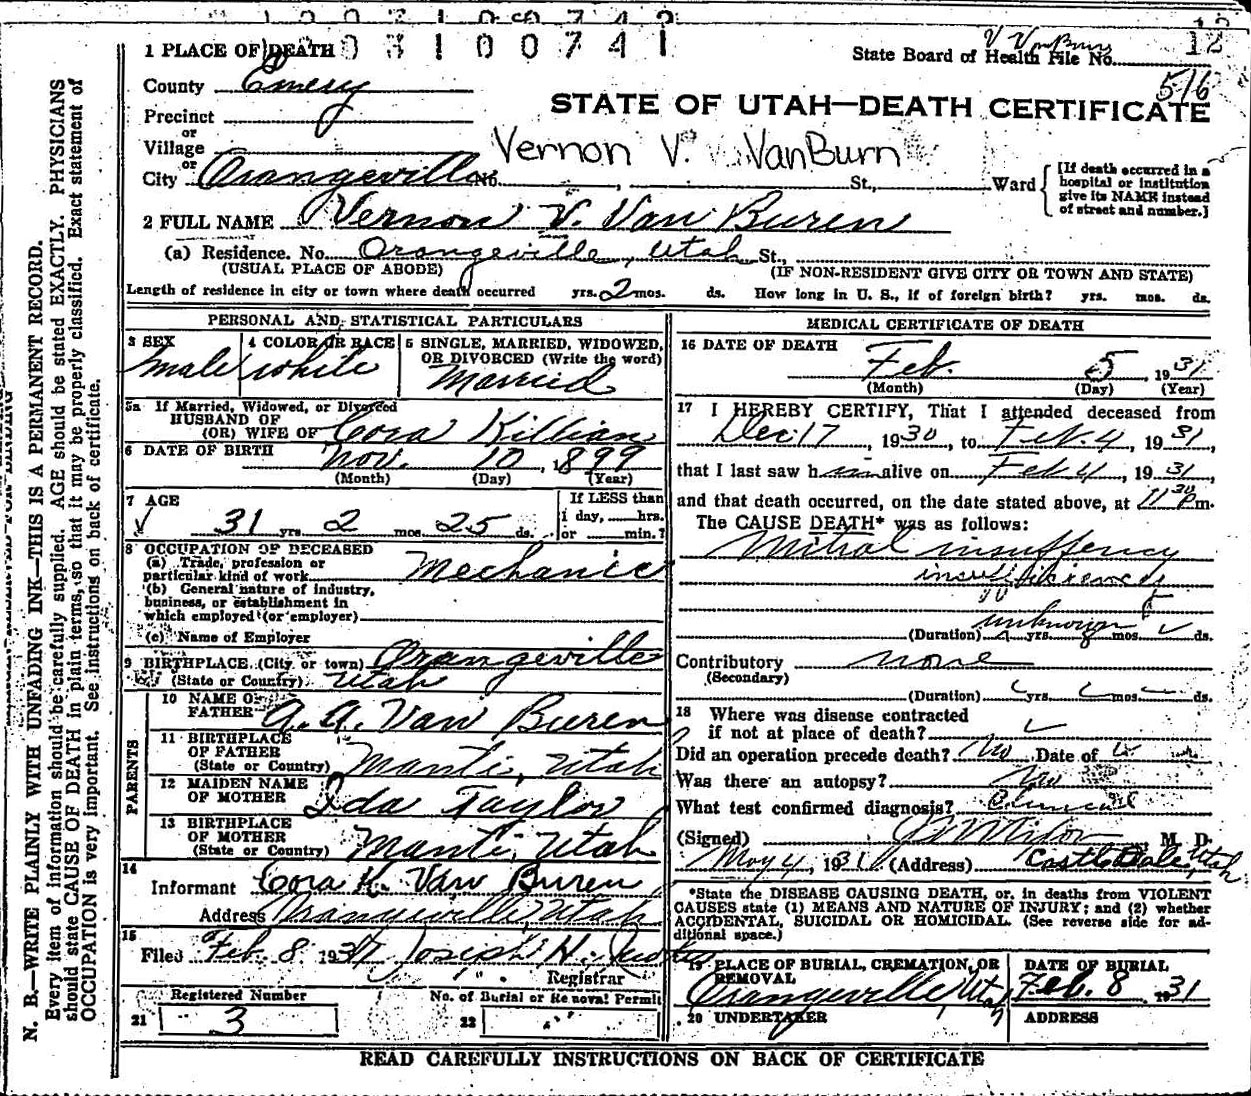 0 0 3 1 0 0 7 4 1
V. Van Buren
12
1 PLACE OF DEATH
State Board of Health File No.
516
County Emery
STATE OF UTAH—DEATH CERTIFICATE
Precinct
or
Village
Vernon V. VanBurn
or
City Orangeville No. , St., Ward
[If death occurred in a hospital or institution give its NAME instead of street and number.]
2 FULL NAME Vernon V. Van Buren
(a) Residence. No. Orangeville, Utah St.,
(USUAL PLACE OF ABODE) (IF NON-RESIDENT GIVE CITY OR TOWN AND STATE)
Length of residence in city or town where death occurred yrs. 2 mos. ds. How long in U. S., if of foreign birth? yrs. mos. ds.
PERSONAL AND STATISTICAL PARTICULARS
3 SEX male
4 COLOR OR RACE white
5 SINGLE, MARRIED, WIDOWED, OR DIVORCED (Write the word) Married
5a If Married, Widowed, or Divorced
HUSBAND OF
(OR) WIFE OF Cora Killian
6 DATE OF BIRTH Nov. 10, 1899
(Month) (Day) (Year)
7 AGE
31 yrs. 2 mos. 25 ds.
If LESS than
1 day, hrs.
or min.?
8 OCCUPATION OF DECEASED
(a) Trade, profession or
particular kind of work Mechanic
(b) General nature of industry,
business, or establishment in
which employed (or employer)
(c) Name of Employer
9 BIRTHPLACE (City or town) Orangeville
(State or Country) Utah
PARENTS
10 NAME OF
FATHER A. A. Van Buren
11 BIRTHPLACE
OF FATHER
(State or Country) Manti, Utah
12 MAIDEN NAME
OF MOTHER Ida Taylor
13 BIRTHPLACE
OF MOTHER
(State or Country) Manti, Utah
14
Informant Cora K. Van Buren
Address Orangeville, Utah
15
Filed Feb. 8 1931 Joseph H.
Registrar
Registered Number
21 3
No. of Burial or Removal Permit
22
MEDICAL CERTIFICATE OF DEATH
16 DATE OF DEATH
Feb. 5, 1931
(Month) (Day) (Year)
17 I HEREBY CERTIFY, That I attended deceased from
Dec 17, 1930, to Feb. 4, 1931,
that I last saw him alive on Feb 4, 1931,
and that death occurred, on the date stated above, at 11 30 Pm.
The CAUSE DEATH* was as follows:
Mitral insuffency
insufficiency
unknown
(Duration) yrs. mos. ds.
Contributory none
(Secondary)
(Duration) yrs. mos. ds.
18 Where was disease contracted
if not at place of death?
Did an operation precede death? No Date of
Was there an autopsy? No
What test confirmed diagnosis?
(Signed) M. D.
May 4, 1931 (Address) Castle Dale, Utah
*State the DISEASE CAUSING DEATH, or, in deaths from VIOLENT
CAUSES state (1) MEANS AND NATURE OF INJURY; and (2) whether
ACCIDENTAL, SUICIDAL OR HOMICIDAL. (See reverse side for ad-
ditional space.)
19 PLACE OF BURIAL, CREMATION, OR
REMOVAL
Orangeville, Utah
DATE OF BURIAL
Feb. 8, 1931
20 UNDERTAKER
ADDRESS
READ CAREFULLY INSTRUCTIONS ON BACK OF CERTIFICATE
N. B.—WRITE PLAINLY WITH UNFADING INK—THIS IS A PERMANENT RECORD.
Every item of information should be carefully supplied. AGE should be stated EXACTLY. PHYSICIANS
should state CAUSE OF DEATH in plain terms, so that it may be properly classified. Exact statement of
OCCUPATION is very important. See instructions on back of certificate.